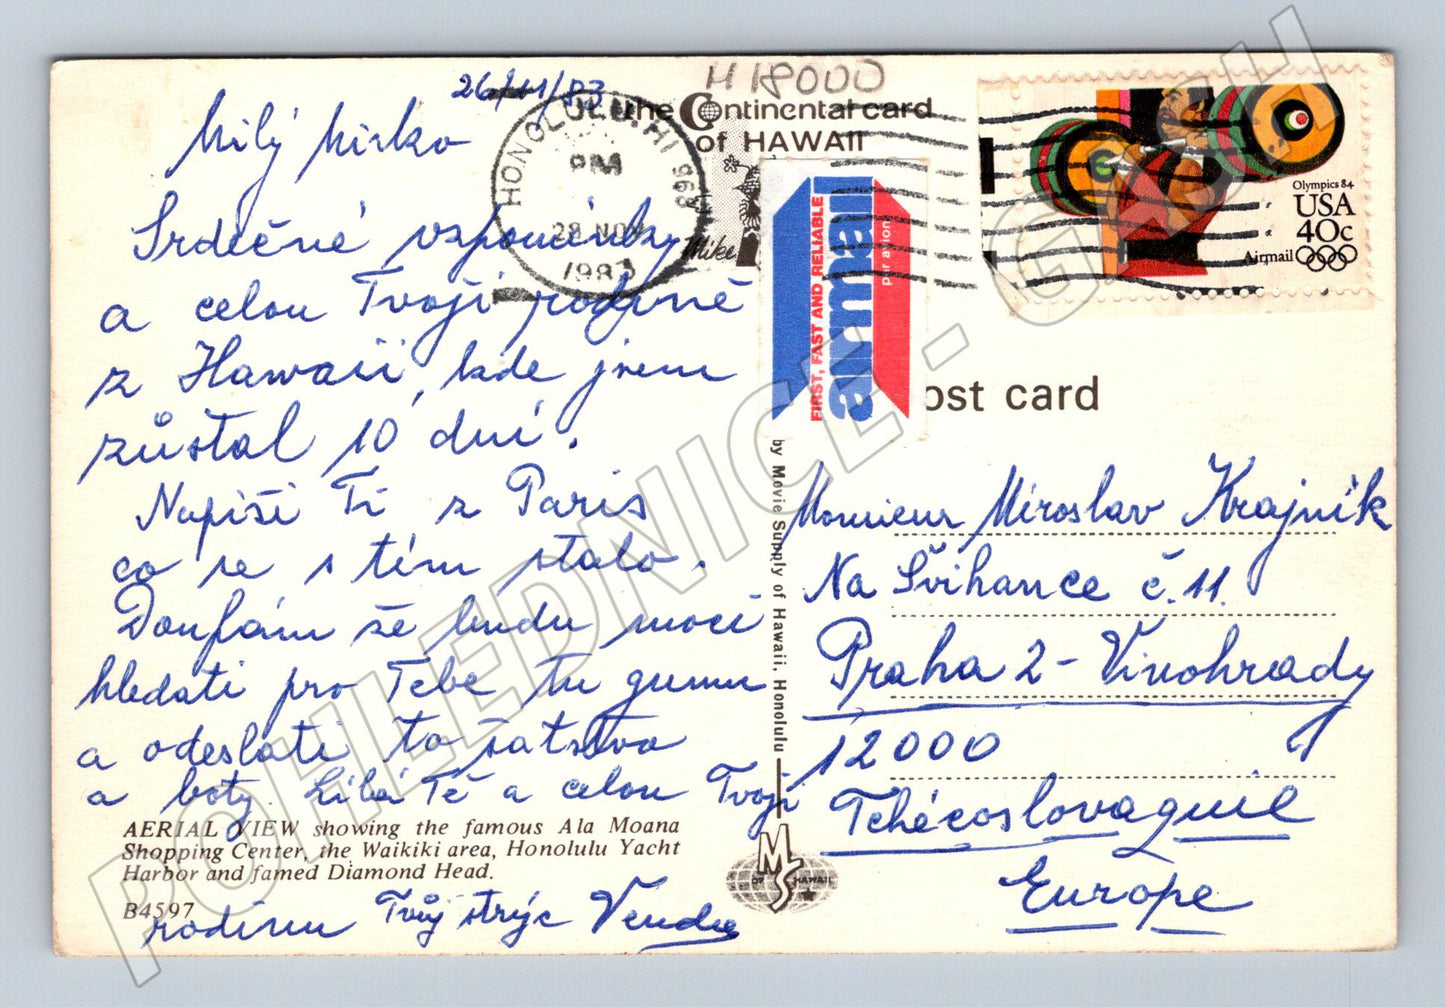 26/11/83
Milý Mirko
Srdečné vzpomínky
a celou Tvoji rodině
z Hawaii, kde jsem
zůstal 10 dní.
Napíši Ti z Paris
co se s tím stalo.
Doufám že budu moci
hledati pro Tebe tu gumu
a odeslati ta
a boty. Líbá Tě a celou Tvoji
rodinu Tvůj strýc
AERIAL VIEW showing the famous Ala Moana
Shopping Center, the Waikiki area, Honolulu Yacht
Harbor and famed Diamond Head.
B4597
H 18000
the Continental card
of HAWAII
Mike
HONOLULU, HI 968
PM
28 NOV
1983
FIRST, FAST AND RELIABLE
par avion
Olympics 84
USA
40c
Airmail
ost card
by Movie Supply of Hawaii, Honolulu
MS
OF HAWAII
Monsieur Miroslav Krajník
Na Švihance č. 11.
Praha 2 - Vinohrady
12000
Tchécoslovaquie
Europe
POHLEDNICE - GASH